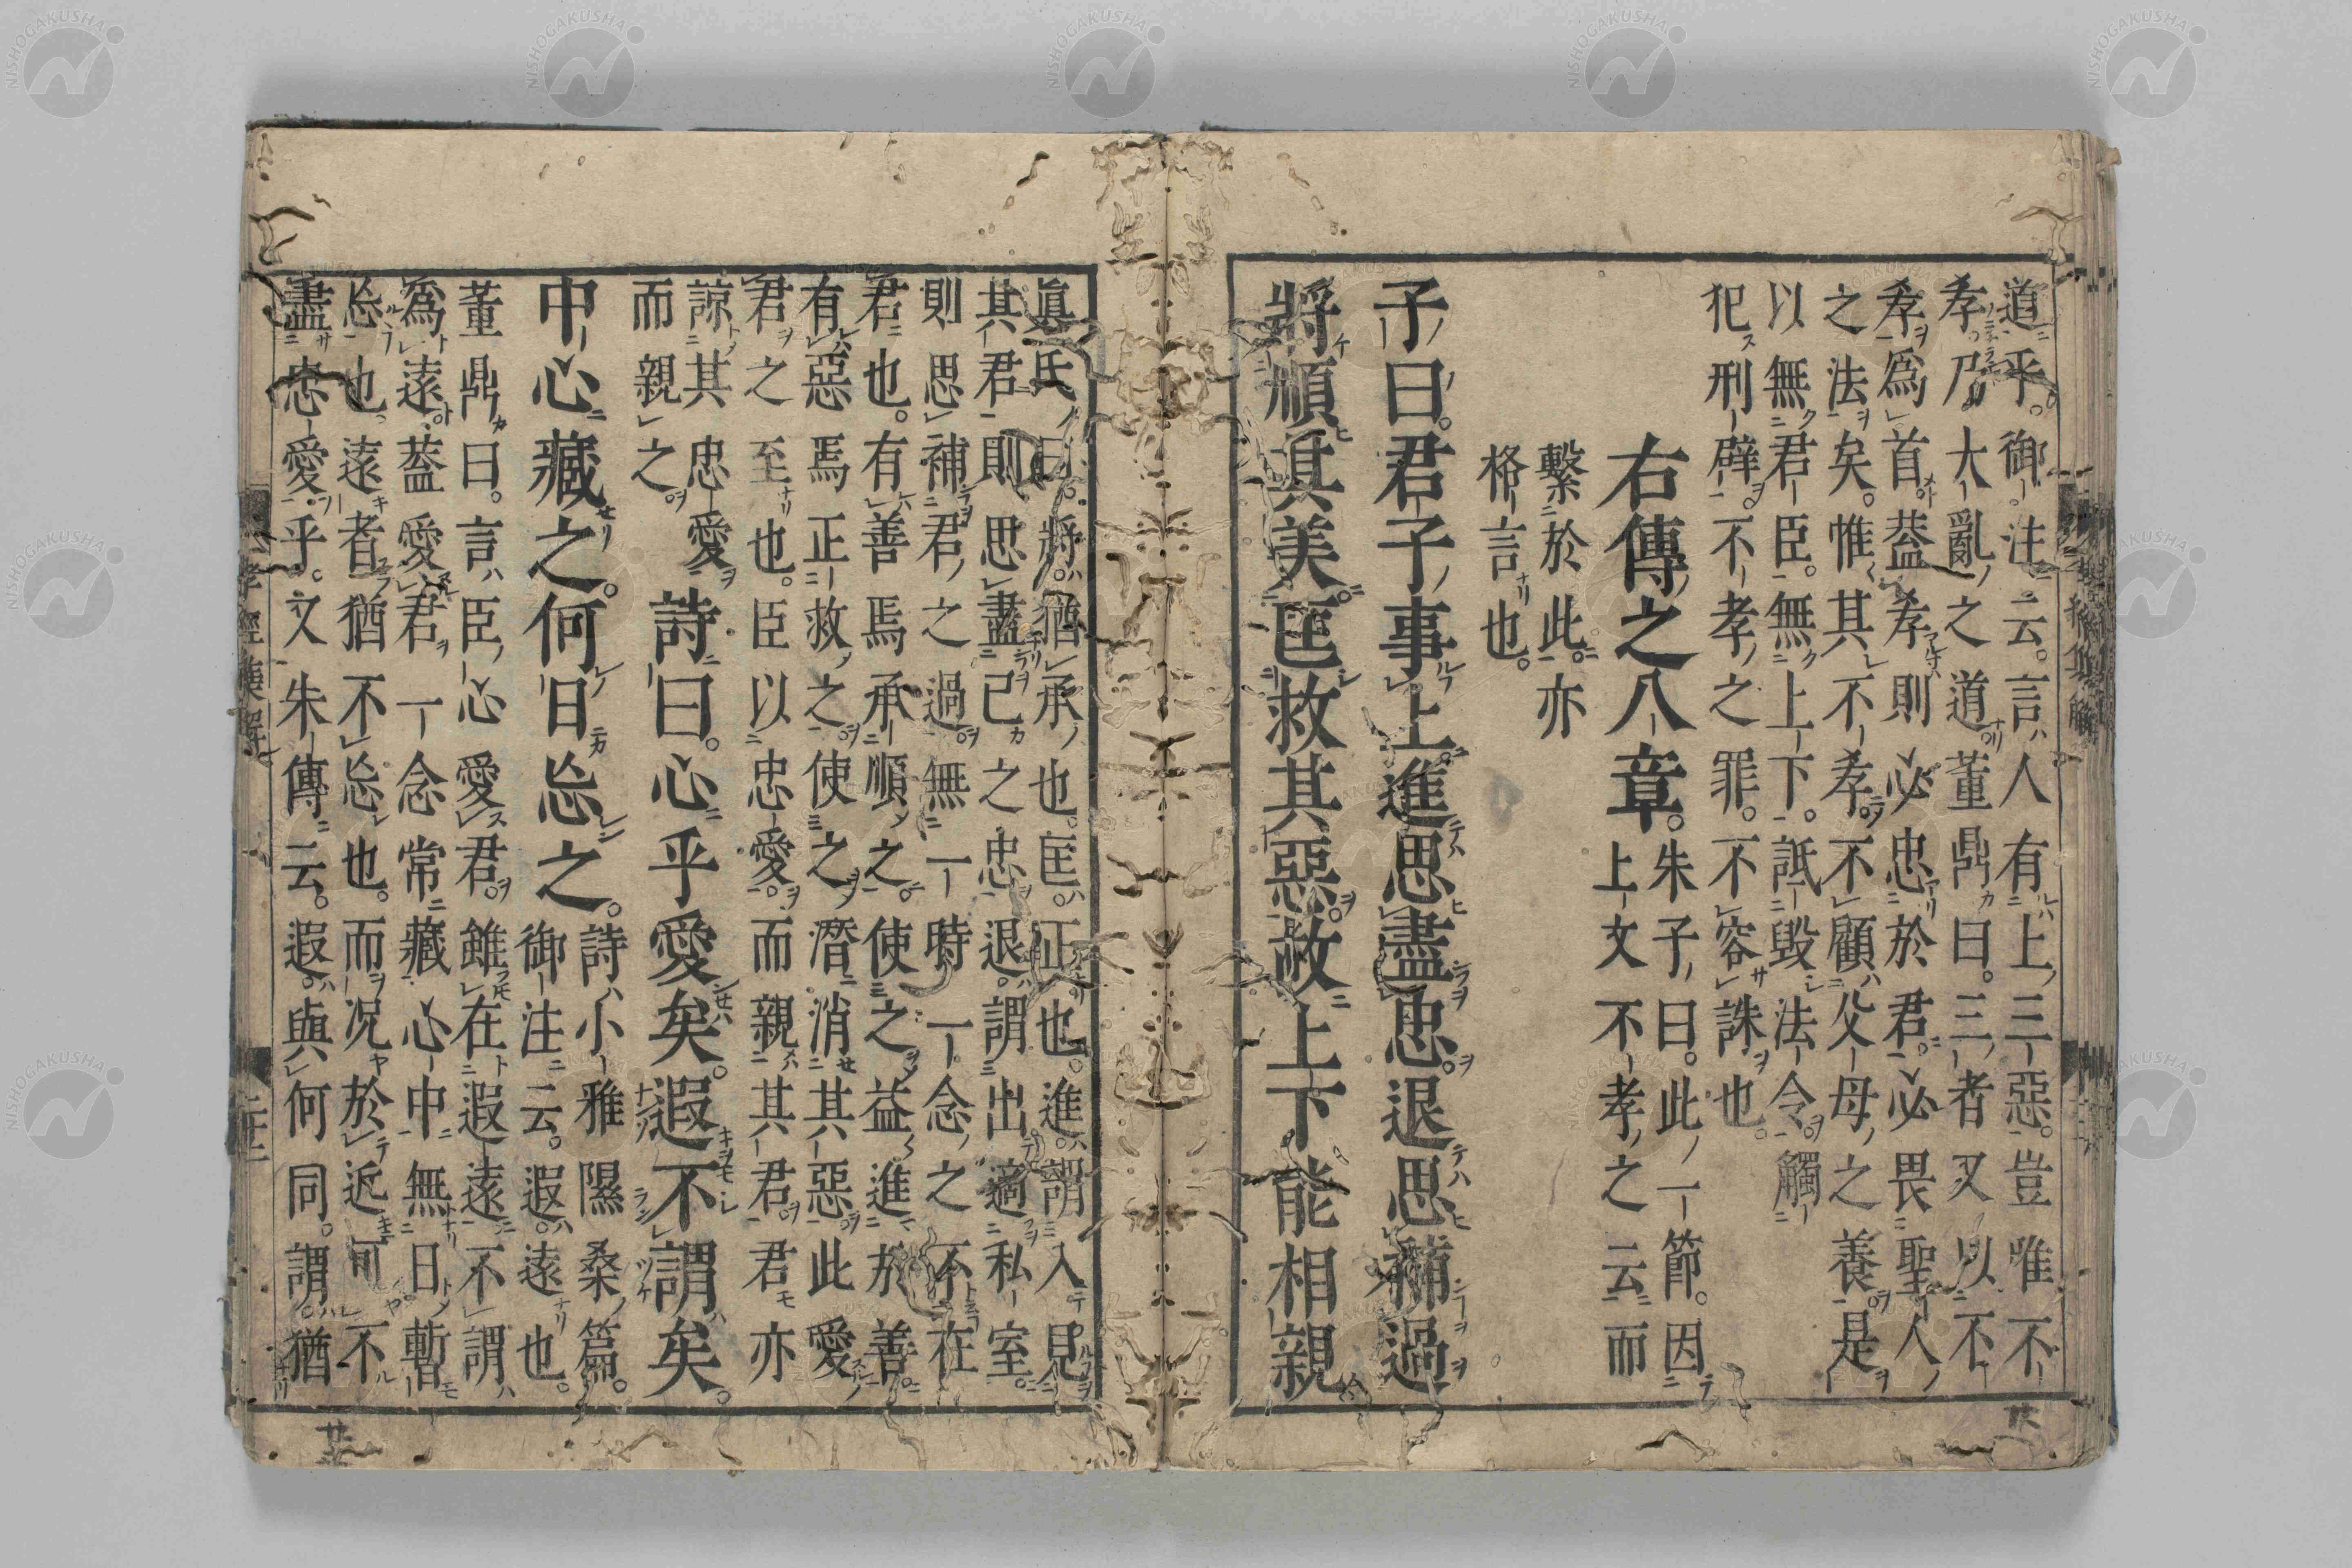 道乎。御注云。言人有上三惡。豈唯不
孝。乃大亂之道董鼎曰。三者又以不
孝爲首。蓋孝則必忠於君。必畏聖人
之法矣。惟其不孝。不顧父母之養是
以無君臣。無上下。詆毀法令。觸
犯刑辟。不孝之罪。不容誅也。
右傳之八章。朱子曰。此一節。因
上文不孝之云而
繫於此。亦
格言也。
子曰。君子事上進思盡忠。退思補過
將順其美。匡救其惡。故上下能相親
眞氏曰。將。猶承也。匡。正也。進。謂入見
其君則思盡己之忠退。謂出適私室。
則思補君之過。無一時一念之不在
君也。有善焉承順之。使之益進於善。
有惡焉正救之。使之潛消其惡。此愛
君之至也。臣以忠愛。而親其君。君亦
諒其忠愛
而親之。
詩曰。心乎愛矣。遐不謂矣。
中心藏之。何日忘之。詩小雅隰桑篇。
御注云。遐。遠也。
董鼎曰。言臣心愛君。雖在遐遠不謂
爲遠。蓋愛君一念常藏心中無日暫
忘也。遠者猶不忘也。而况於近可不
盡忠愛乎。文朱傳云。遐。與何同。謂。猶